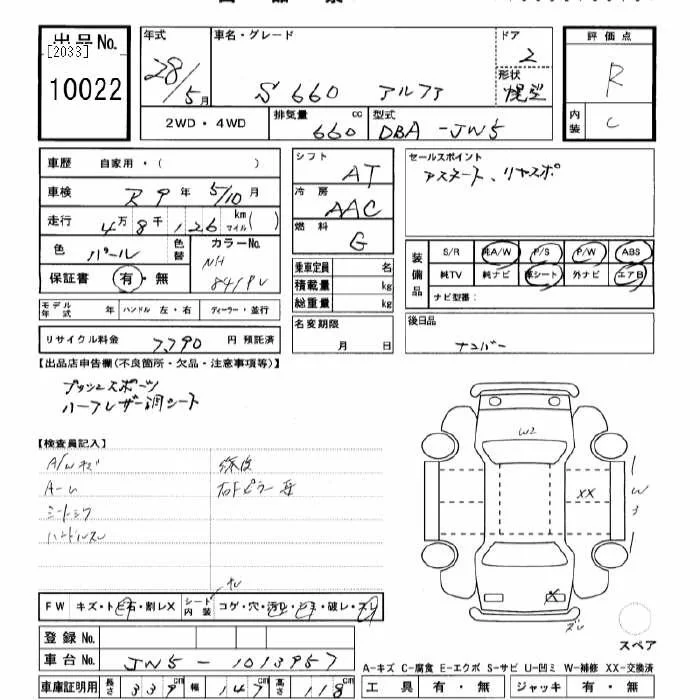 出品No.
[2033]
10022
年式 28/5月
車名・グレード S 660 アルファ
ドア 2
形状 幌型
2WD・4WD
排気量 660 cc
型式 DBA-JW5
評価点 R
内装 C
車歴 自家用・( )
車検 R9年 5/10月
走行 4万8千126 km マイル ( )
色 パール 色替
カラーNo. NH 841PV
保証書 有・無
モデル年式 年 ハンドル 左・右 ディーラー・並行
リサイクル料金 7,790 円 預託済
シフト AT
冷房 AAC
燃料 G
乗車定員 名
積載量 kg
総重量 kg
名変期限 月 日
セールスポイント
装備品 S/R 純A/W P/S P/W ABS
純TV 純ナビ 革シート 外ナビ エアB
ナビ型番:
後日品 ナンバー
【出品店申告欄(不良箇所・欠品・注意事項等)】
プッシュスポーツ
ハーフレザー調シート
【検査員記入】
A/Wキズ
シートシワ
ハンドルスレ
W2
XX
W3
X
ズレ
FW キズ・トビ石・割レX シート内装 コゲ・穴・汚レ・シミ・破レ・スレ
登録No.
車台No. JW5-1013957
車庫証明用 長さ 339cm 幅 147cm 高さ 118cm
スペア
A-キズ C-腐食 E-エクボ S-サビ U-凹ミ W-補修 XX-交換済
工具 有・無 ジャッキ 有・無